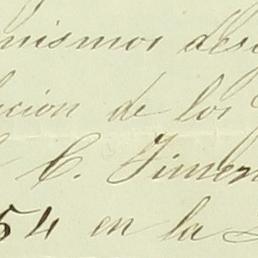 mismos des
ción de los
C. Jimen
54 en la